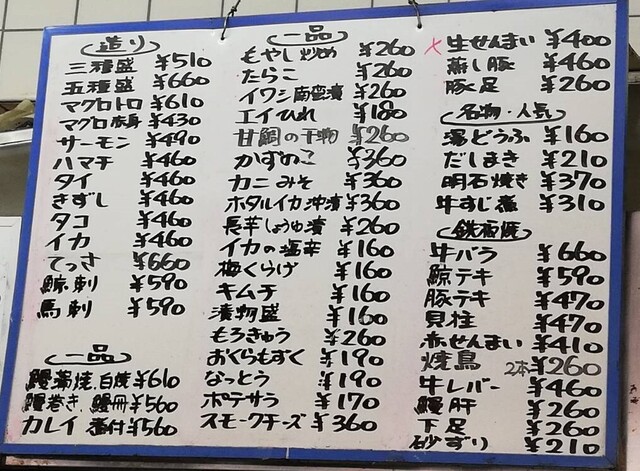 造り
三種盛 ¥510
五種盛 ¥660
マグロトロ ¥610
マグロ赤身 ¥430
サーモン ¥490
ハマチ ¥460
タイ ¥460
きずし ¥460
タコ ¥460
イカ ¥460
てっさ ¥660
鯨刺 ¥590
馬刺 ¥590
一品
鰻蒲焼.白焼 ¥610
鰻巻き.鰻冊 ¥560
カレイ 番付 ¥560
一品
もやし炒め ¥260
たらこ ¥260
イワシ南蛮漬 ¥260
エイひれ ¥180
甘鯛の干物 ¥260
かずのこ ¥360
カニみそ ¥360
ホタルイカ沖漬 ¥360
長芋しょうゆ漬 ¥260
イカの塩辛 ¥160
梅くらげ ¥160
キムチ ¥160
漬物盛 ¥160
もろきゅう ¥260
おくらもずく ¥190
なっとう ¥190
ポテサラ ¥170
スモークチーズ ¥360
×生せんまい ¥400
蒸し豚 ¥460
豚足 ¥260
名物・人気
湯どうふ ¥160
だしまき ¥210
明石焼き ¥370
牛すじ煮 ¥310
鉄板焼
牛バラ ¥660
鯨テキ ¥590
豚テキ ¥470
貝柱 ¥470
赤せんまい ¥410
焼鳥 2本 ¥260
牛レバー ¥460
鰻肝 ¥260
下足 ¥260
砂ずり ¥210